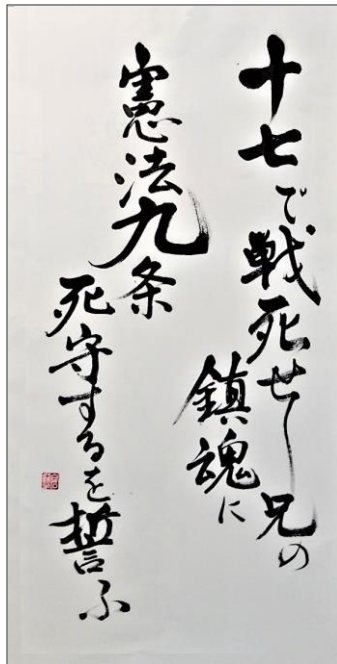 十七で戦死せし兄の
鎮魂に
憲法九条
死守するを誓ふ